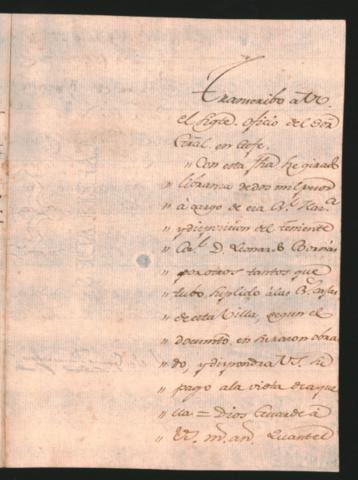 Transcribo a V.
el sigte. Oficio del Sor
Gral. en Gefe.
" Con esta fha he girado
" libranza de dos mil pesos
" à cargo de esa
" y disposicion del teniente
" Cor.l D. Leonar.do
" por otros tantos que
" tubo suplido à las
" de esta Villa, segun el
" documto. en
" do, y dispondra VS. su
" pago a la vista de aque
" lla = Dios Guarde à
" VS. m.s an.s Quartel